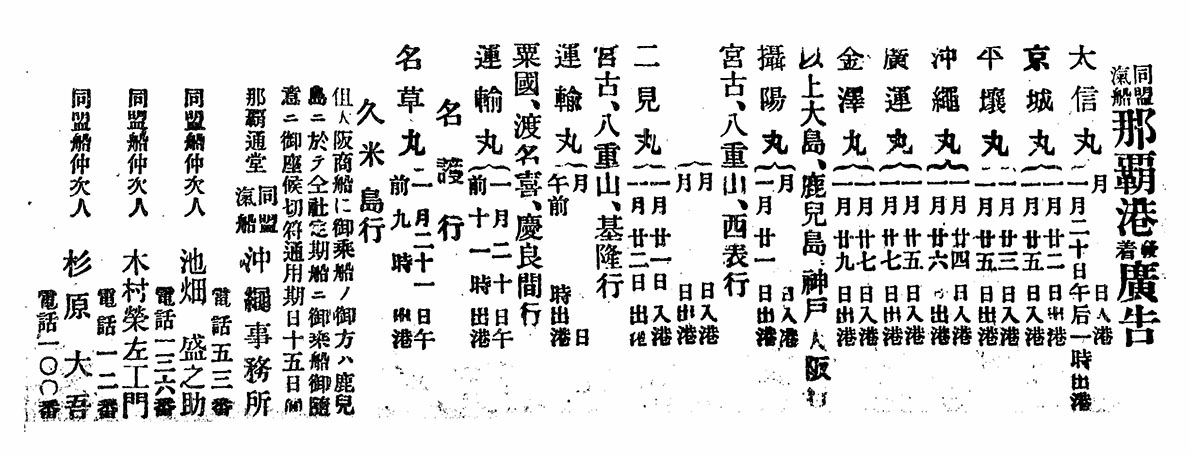 同盟汽船那覇港發着廣告
太信丸 月 日入港
一月二十日午后一時出港
京城丸 一月廿二日入港
一月廿二日出港
平壤丸 一月廿三日入港
一月廿五日出港
沖繩丸 一月廿四日入港
一月廿六日出港
廣運丸 一月廿五日入港
一月廿七日出港
金澤丸 一月廿七日入港
一月廿九日出港
以上大島、鹿兒島、神戸大阪行
攝陽丸 月 日入港
一月廿一日出港
宮古、八重山、西表行
月 日入港
月 日出港
二見丸 一月廿一日入港
一月廿二日出港
宮古、八重山、基隆行
運輸丸 月 日
午前 時出港
粟國、渡名喜、慶良間行
運輸丸 一月二十日午
前十一時出港
名護行
名草丸 一月二十一日午
前九時出港
久米島行
但大阪商船に御乘船ノ御方ハ鹿兒
島ニ於テ仝社定期船ニ御乘船御隨
意ニ御座候切符通用期日十五日間
那覇通堂 同盟汽船 沖繩事務所
電話五三番
同盟船仲次人 池畑盛之助
電話一三六番
同盟船仲次人 木村榮左工門
電話一二番
同盟船仲次人 杉原大吾
電話一〇〇番